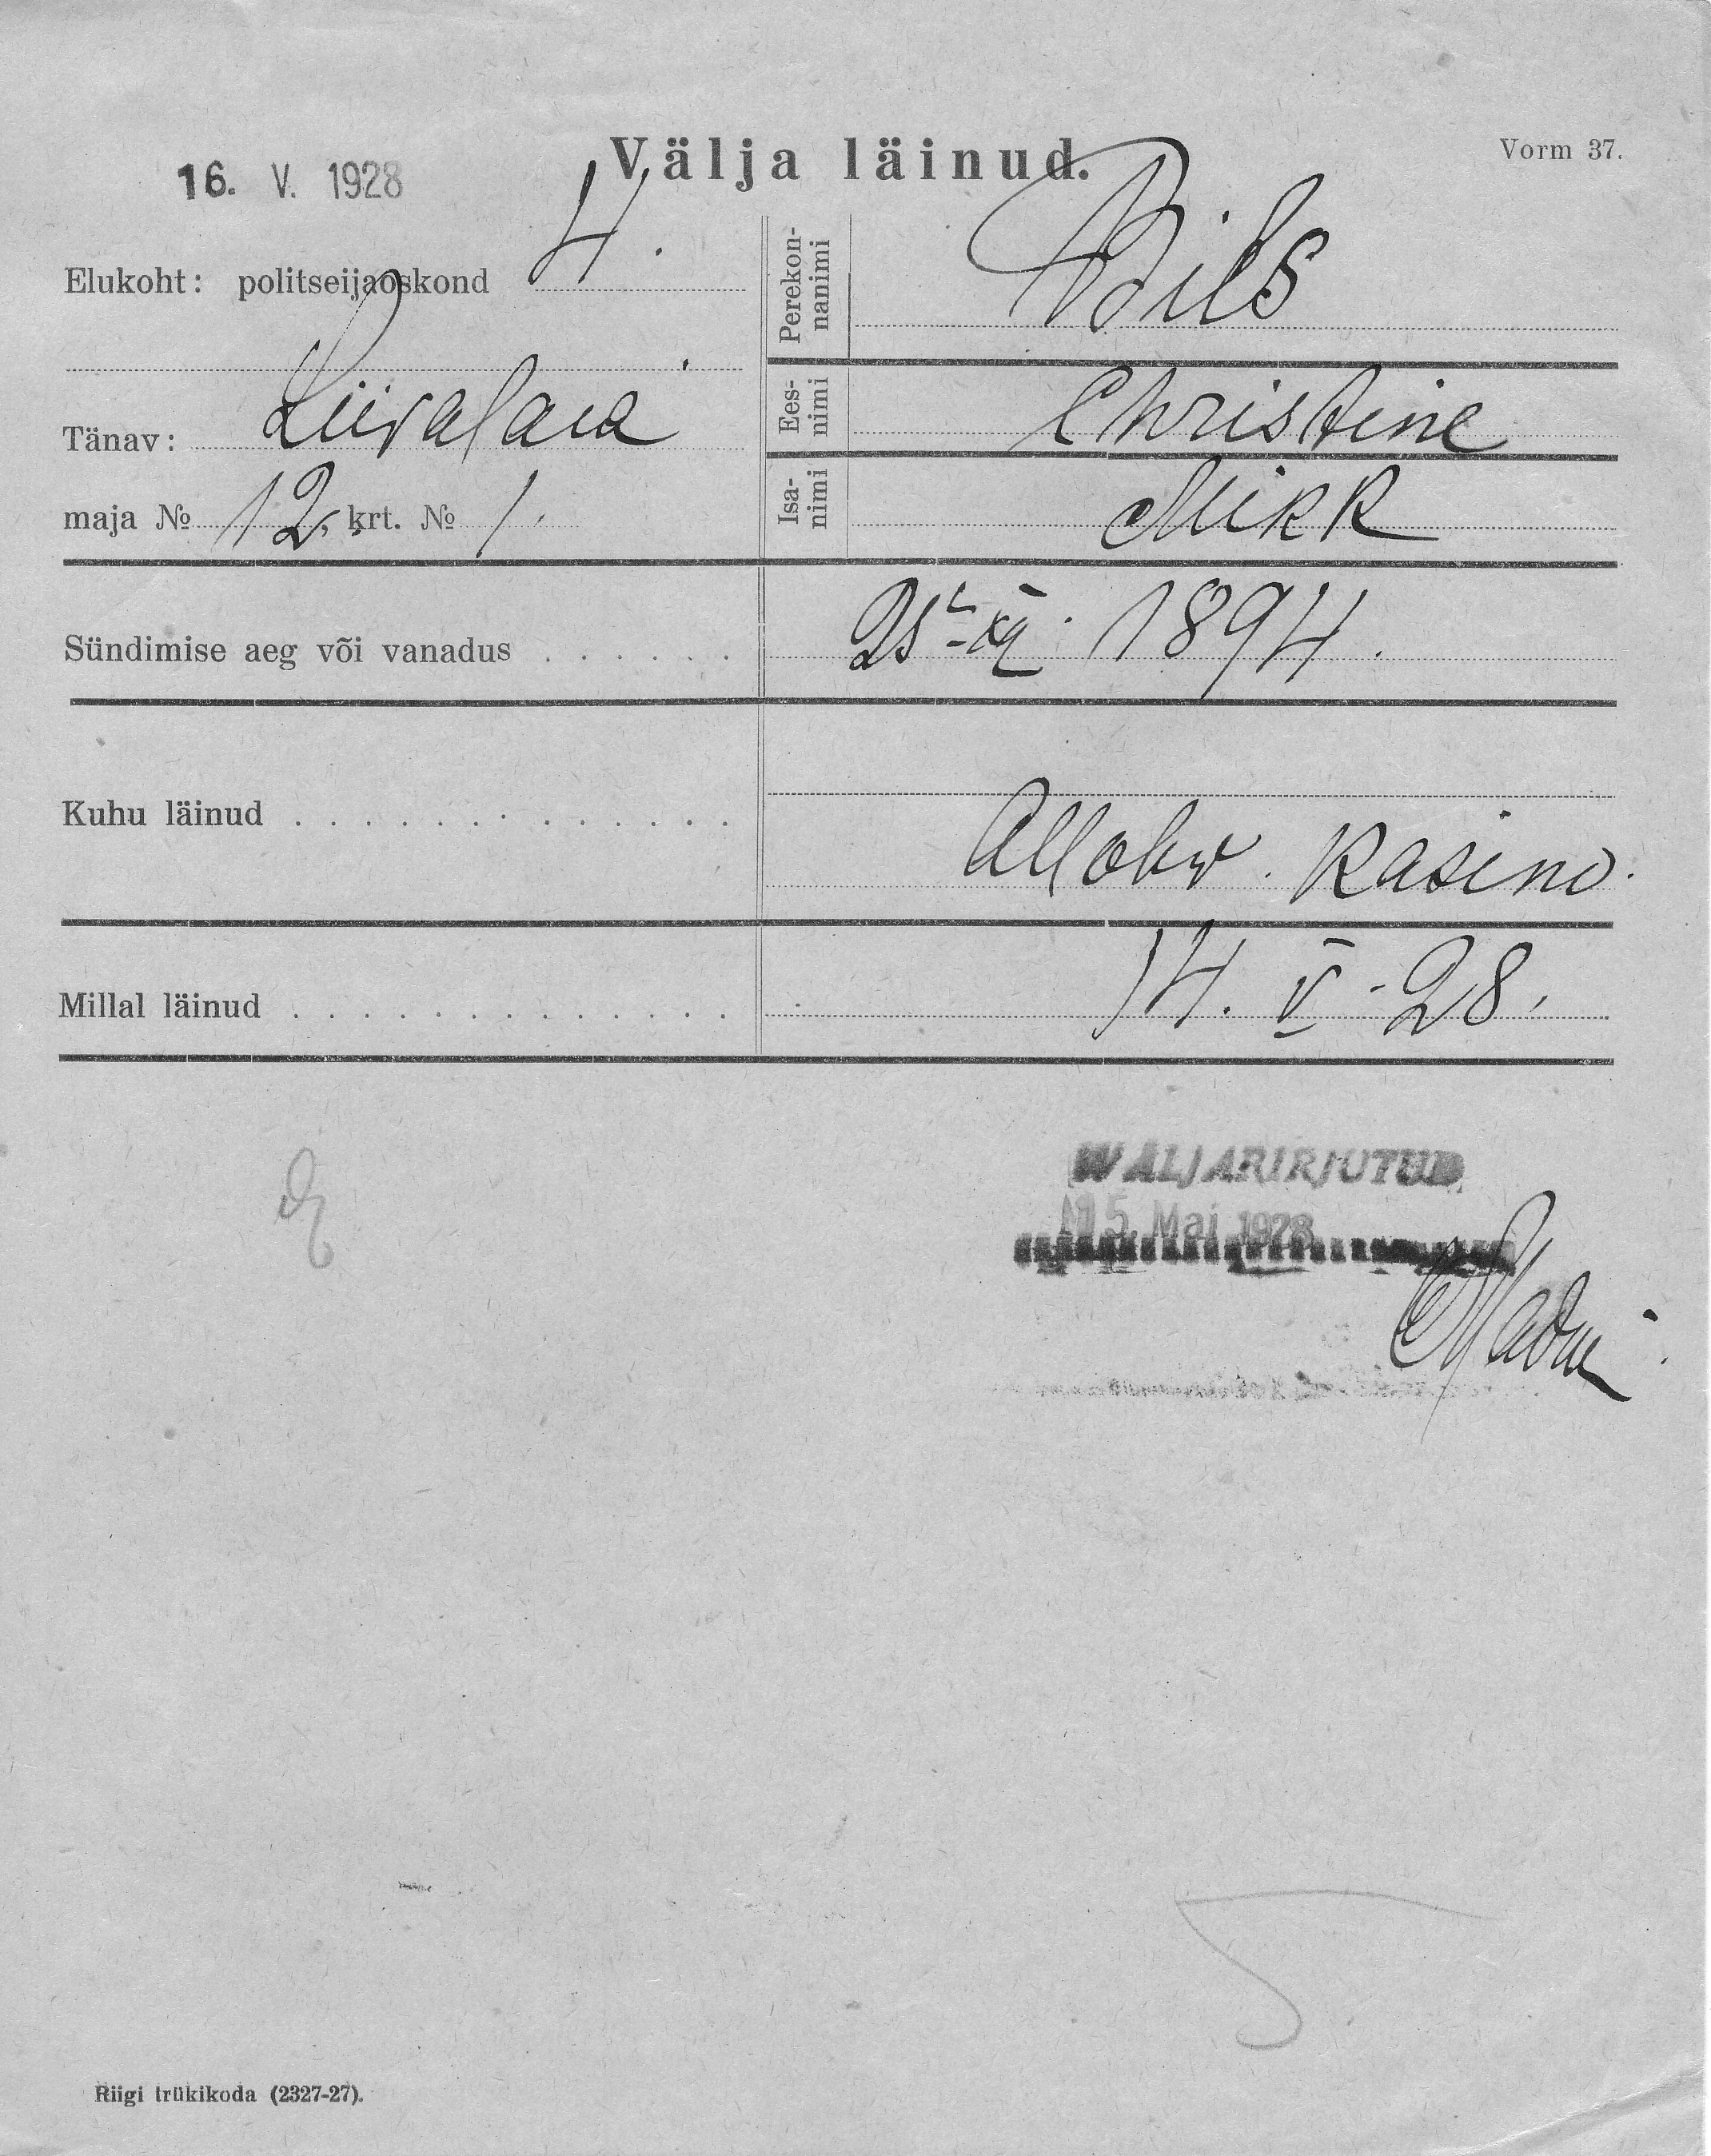 Välja läinud.
Vorm 37.
16. V. 1928
Elukoht: politseijaoskond 4.
Tänav: Liivalaia
maja № 12, krt. № 1.
Perekon-
nanimi
Pils
Ees-
nimi
Christine
Isa-
nimi
Mikk
Sündimise aeg või vanadus . . . . . .
1894.
Kuhu läinud . . . . . . . . . . . . .
Kasino.
Millal läinud . . . . . . . . . . . . .
14. V - 28.
WÄLJAKIRJUTUD
15. Mai 1928
5
Riigi trükikoda (2327-27).